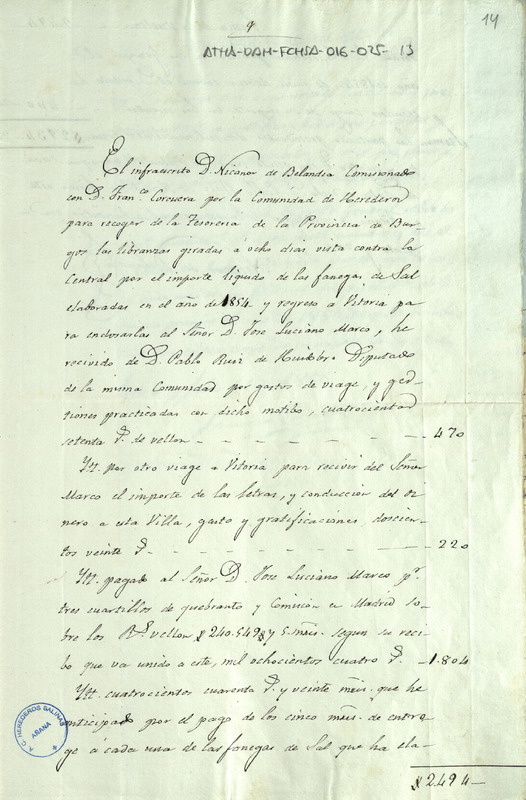 9
14
ATHA-DAH-FCHSA-016-025-13
El infraescrito D. Nicanor de Belandia Comisionado
con D. Fran.co Corcuera por la Comunidad de Herederos
para recoger de la Tesoreria de la Provincia de Bur-
gos las libranzas giradas á ocho dias vista contra la
Central por el importe líquido de las fanegas de Sal
elaboradas en el año de 1854. y regreso a Vitoria pa
ra endosarlas al Señor D. Jose Luciano Marco, he
recivido de D. Pablo Ruiz de Huidobro Diputado
de la misma Comunidad por gastos de viage, y ges-
tiones practicadas con dicho motibo, cuatrocientos
setenta r.s de vellon - - - - - - 470
Yt. por otro viage a Vitoria para recivir del Señor
Marco el importe de las letras, y conduccion del di
nero a esta Villa, gasto y gratificaciones doscien-
tos veinte r.s - - - - - - 220
Yt. pagado al Señor D. Jose Luciano Marco p.r
tres cuartillos de quebranto y Comision en Madrid so-
bre los R.s vellon 240.549 y 5 ms. segun su reci-
bo que va unido a este, mil ochocientos cuatro r.s - 1.804
Yt. cuatrocientos cuarenta r.s y veinte ms. que he
anticipado por el pago de los cinco ms. de entre
ge á cada una de las fanegas de Sal que ha ela-
2494
A.C. HEREDEROS SALINAS
AÑANA